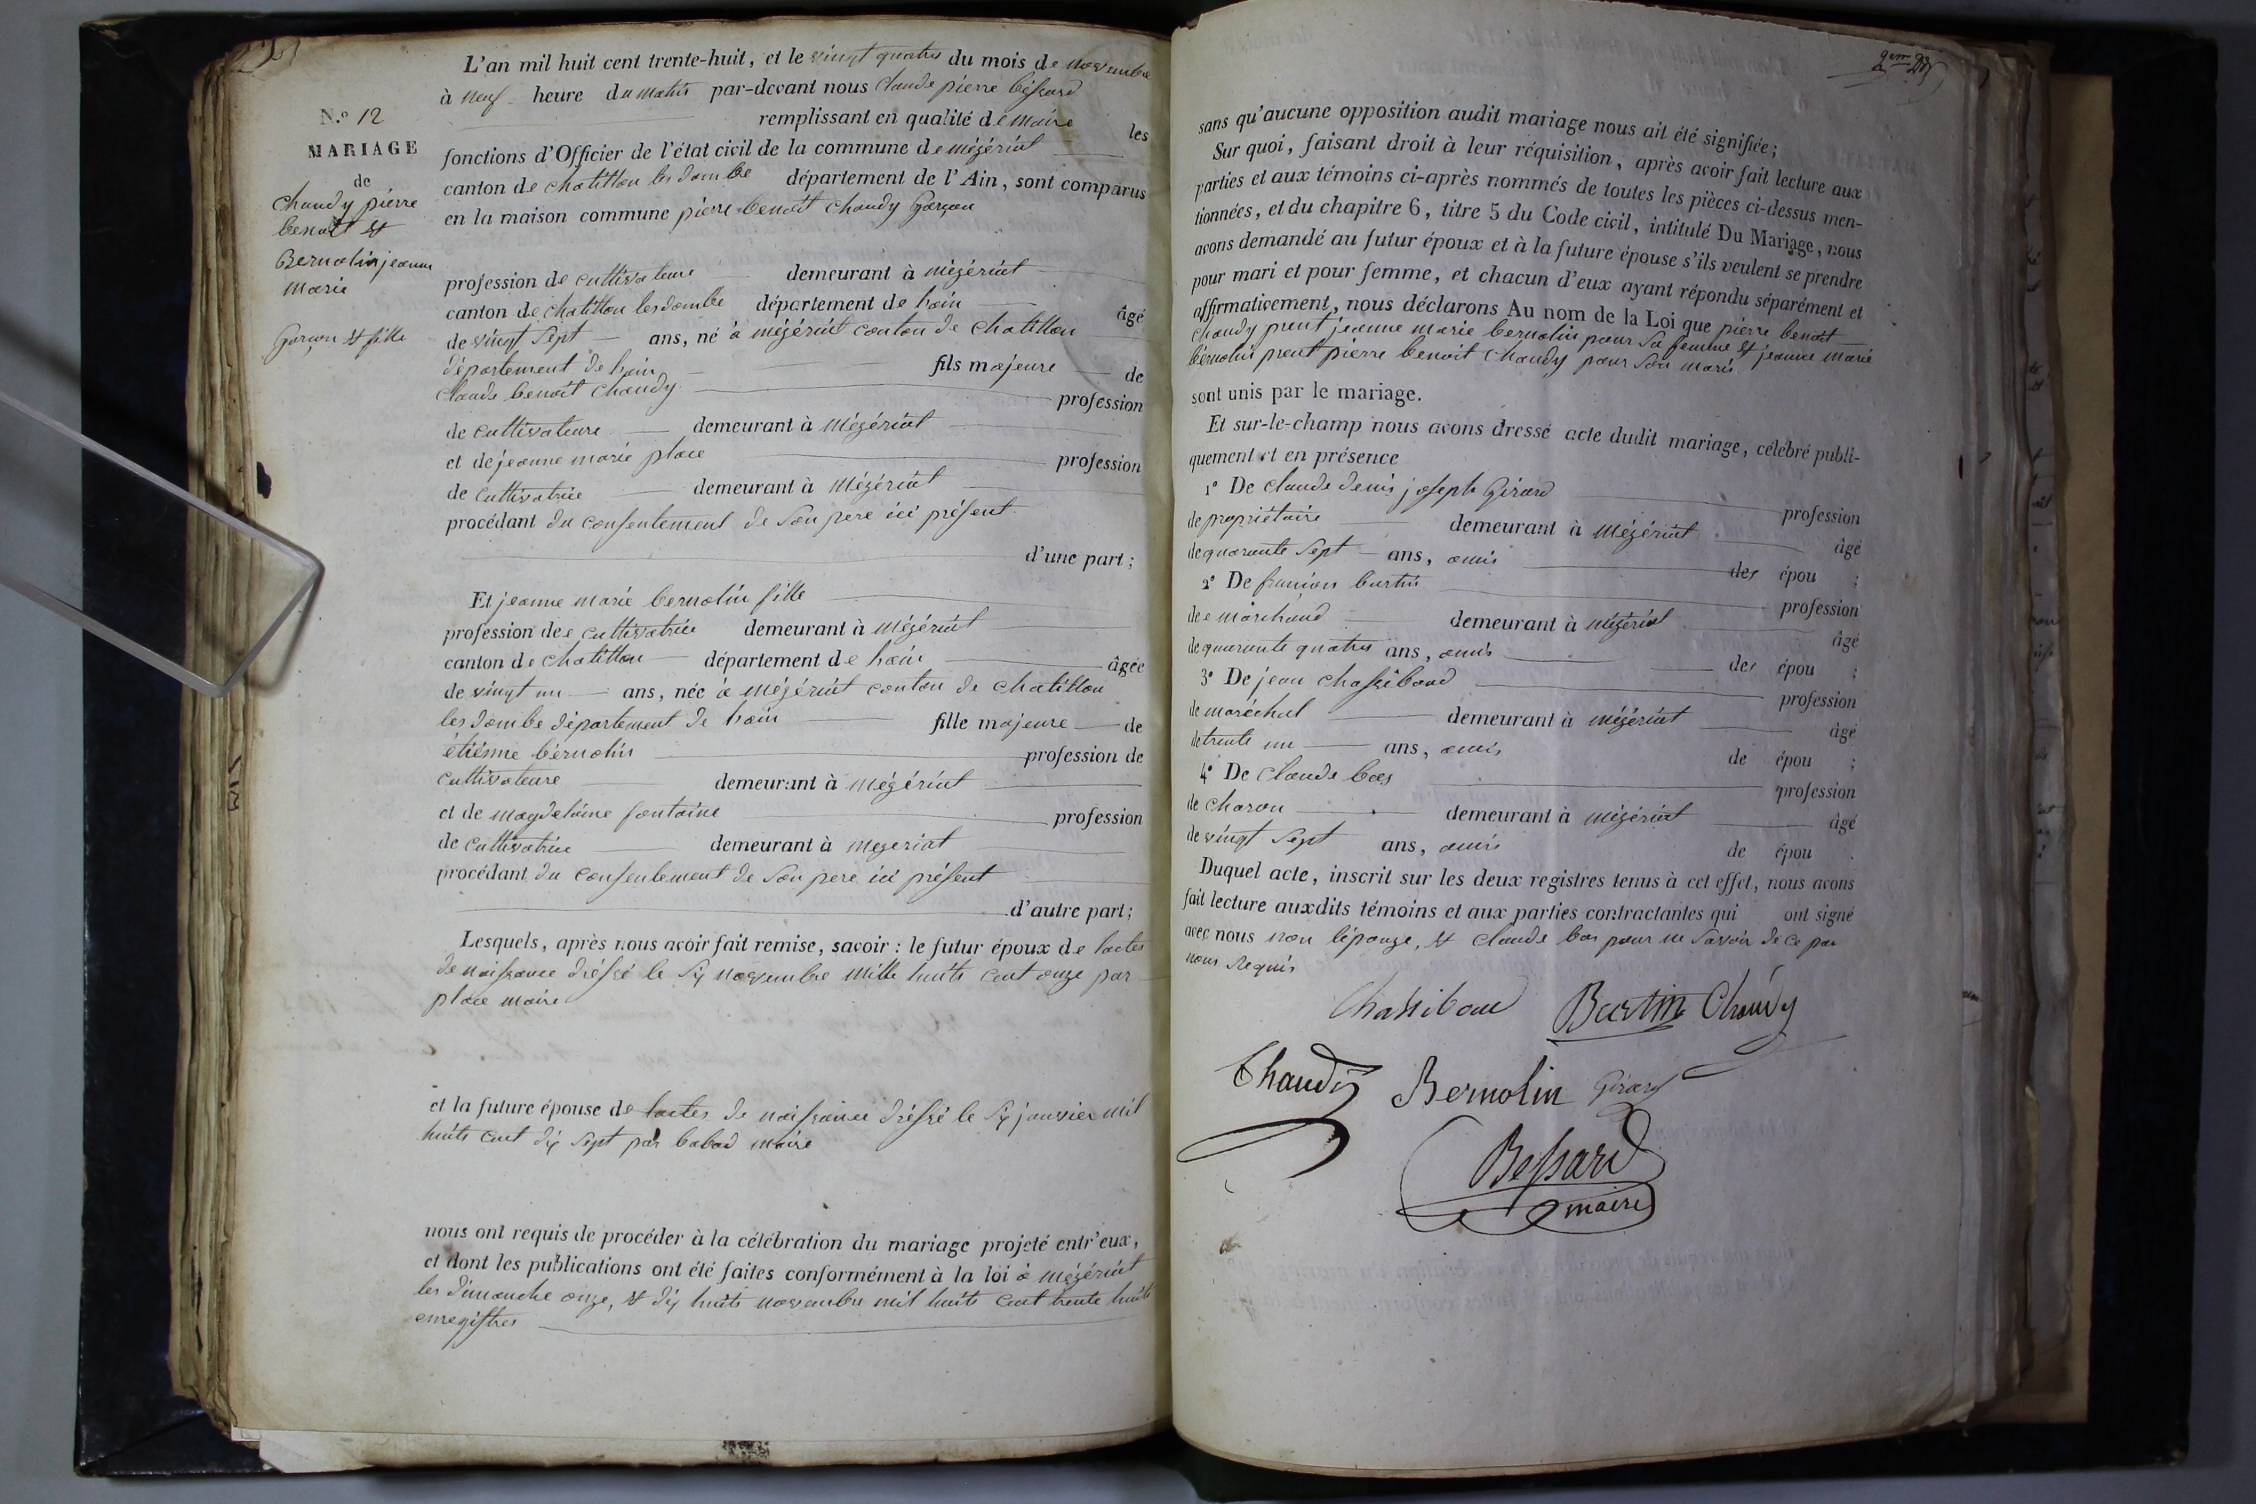 L'an mil huit cent trente-huit, et le vingt quatre du mois de novembre
à neuf heure du matin par-devant nous claude pierre béssard
remplissant en qualité de maire les
fonctions d'Officier de l'état civil de la commune de mézériat
canton de chatillon les dombe département de l'Ain, sont comparus
en la maison commune pierre benoit chaudy Garçon
profession de cultivateure demeurant à mézériat
canton de chatillon les dombe département de hain âgé
de vingt sept ans, né à mézériat canton de chatillon
département de hain fils majeure de
claude benoit chaudy profession
de cultivateure demeurant à mézériat
et de jeanne marie place profession
de cultivatrice demeurant à mézériat
procédant du consentement de son pere ici présent
d'une part;
Et jeanne marie bernolin fille
profession dee cultivatrice demeurant à mézériat
canton de chatillon département de hain âgée
de vingt un ans, née à mézériat canton de chatillon
les dombe département de hain fille majeure de
étiénne bérnolin profession de
cultivateure demeurant à mézériat
et de magdelaine fontaine profession
de cultivatrice demeurant à mezeriat
procédant du consentement de son pere ici présent
d'autre part;
Lesquels, après nous avoir fait remise, savoir: le futur époux de lactes
de naissance dréssé le six novembre mille huits cent onze par
place maire
et la future épouse de lactes de naissance dréssé le six janvier mil
huits cent dix sept par babad maire
nous ont requis de procéder à la célébration du mariage projeté entr'eux,
et dont les publications ont été faites conformément à la loi à mézériat
les dimanche onze, et dix huits novembre mil huits cent trente huits
enregistres
N.º 12
MARIAGE
de
chaudy pierre
benoit et
Bernolin jeanne
marie
Garçon et fille
sans qu'aucune opposition audit mariage nous ait été signifiée;
Sur quoi, faisant droit à leur réquisition, après avoir fait lecture aux
parties et aux témoins ci-après nommés de toutes les pièces ci-dessus men-
tionnées, et du chapitre 6, titre 5 du Code civil, intitulé Du Mariage, nous
avons demandé au futur époux et à la future épouse s'ils veulent se prendre
pour mari et pour femme, et chacun d'eux ayant répondu séparément et
affirmativement, nous déclarons Au nom de la Loi que pierre benoit
chaudy prent jeanne marie bernolin pour sa femme et jeanne marie
bérnolin prent pierre benoit chaudy pour son maris
sont unis par le mariage.
Et sur-le-champ nous avons dressé acte dudit mariage, célébré publi-
quement et en présence
1º De claude denis joseph Girard profession
de propriétaire demeurant à mézériat âgé
de quarante sept ans, amis des épou ;
2º De françois burtin profession
dee marchand demeurant à mézériat âgé
de quarante quatre ans, amis des épou ;
3º De jean chassiboud profession
de maréchal demeurant à mézériat âgé
de trente un ans, amis de épou ;
4º De claude bas profession
de charon demeurant à mézériat âgé
de vingt sept ans, amis de épou .
Duquel acte, inscrit sur les deux registres tenus à cet effet, nous avons
fait lecture auxdits témoins et aux parties contractantes qui ont signé
avec nous non l'épouze, et claude bas pour ne savoir de ce par
nous requis
Chassiboud Burtin Chaudy
Chaudy Bernolin Girard
Bessard
maire